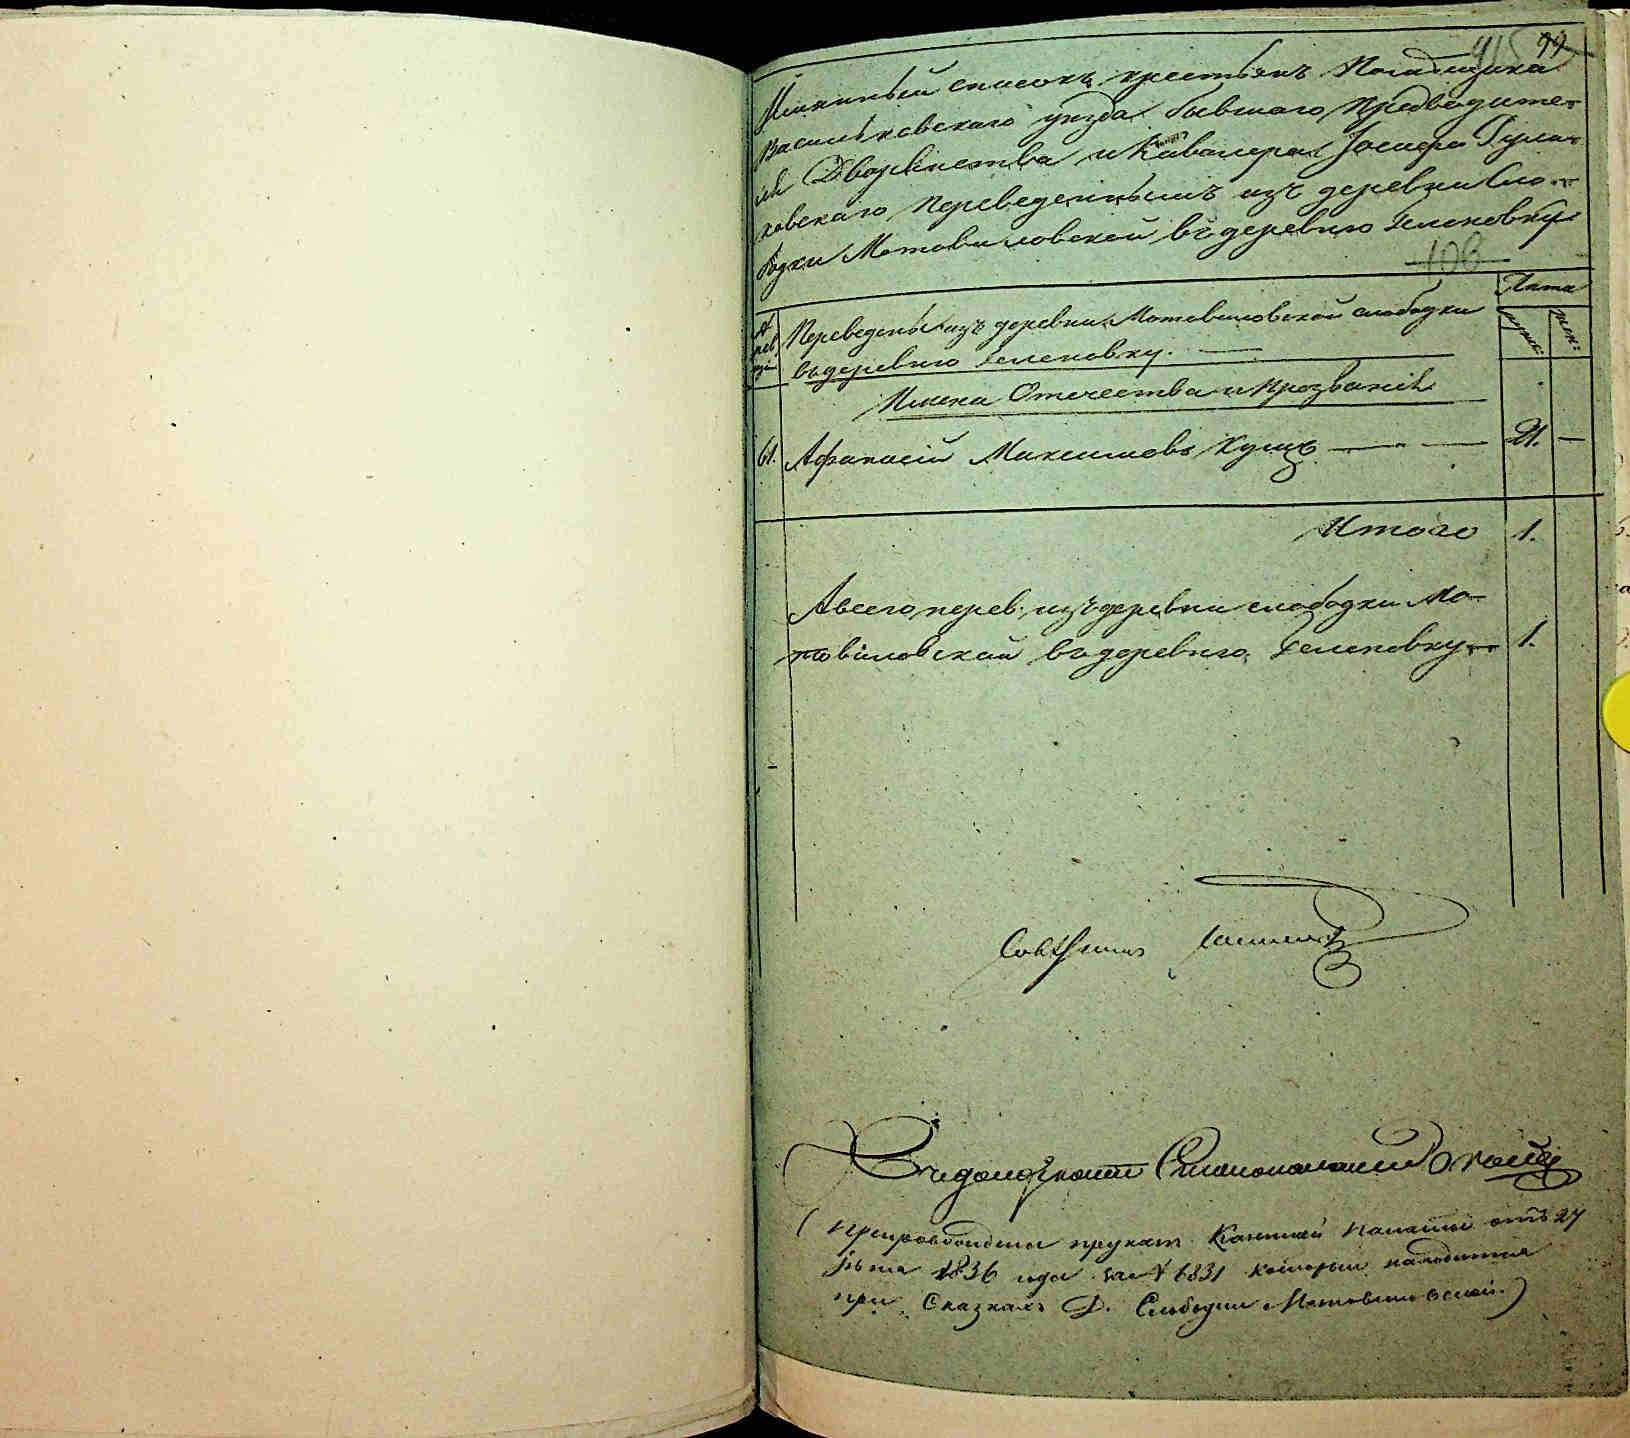 99
915
Имянный списокъ крестьянъ Помещика
Васильковскаго уезда бывшаго Предводите-
ля Дворянства и Кавалера Іосифа Рули-
ковскаго переведеннымъ изъ деревни Сло-
бодки Мотовиловской въ деревню Еленовку
108
№ рев. Переведены изъ деревни Мотовиловской слободки Лета
въ деревню Еленовку. муж: жен:
Имена Отечества и прозваніе
61. Афанасій Максимовъ Кущъ 21. —
Итого 1.
А всего перев. изъ деревни слободки Мо-
товиловской въ деревню Еленовку 1.
Советникъ
Столоначальник
(препровождены при указе Казенной палаты отъ 27
1836 года за № 6831 который находится
при Сказкахъ Д. Слободки Мотовиловской.)